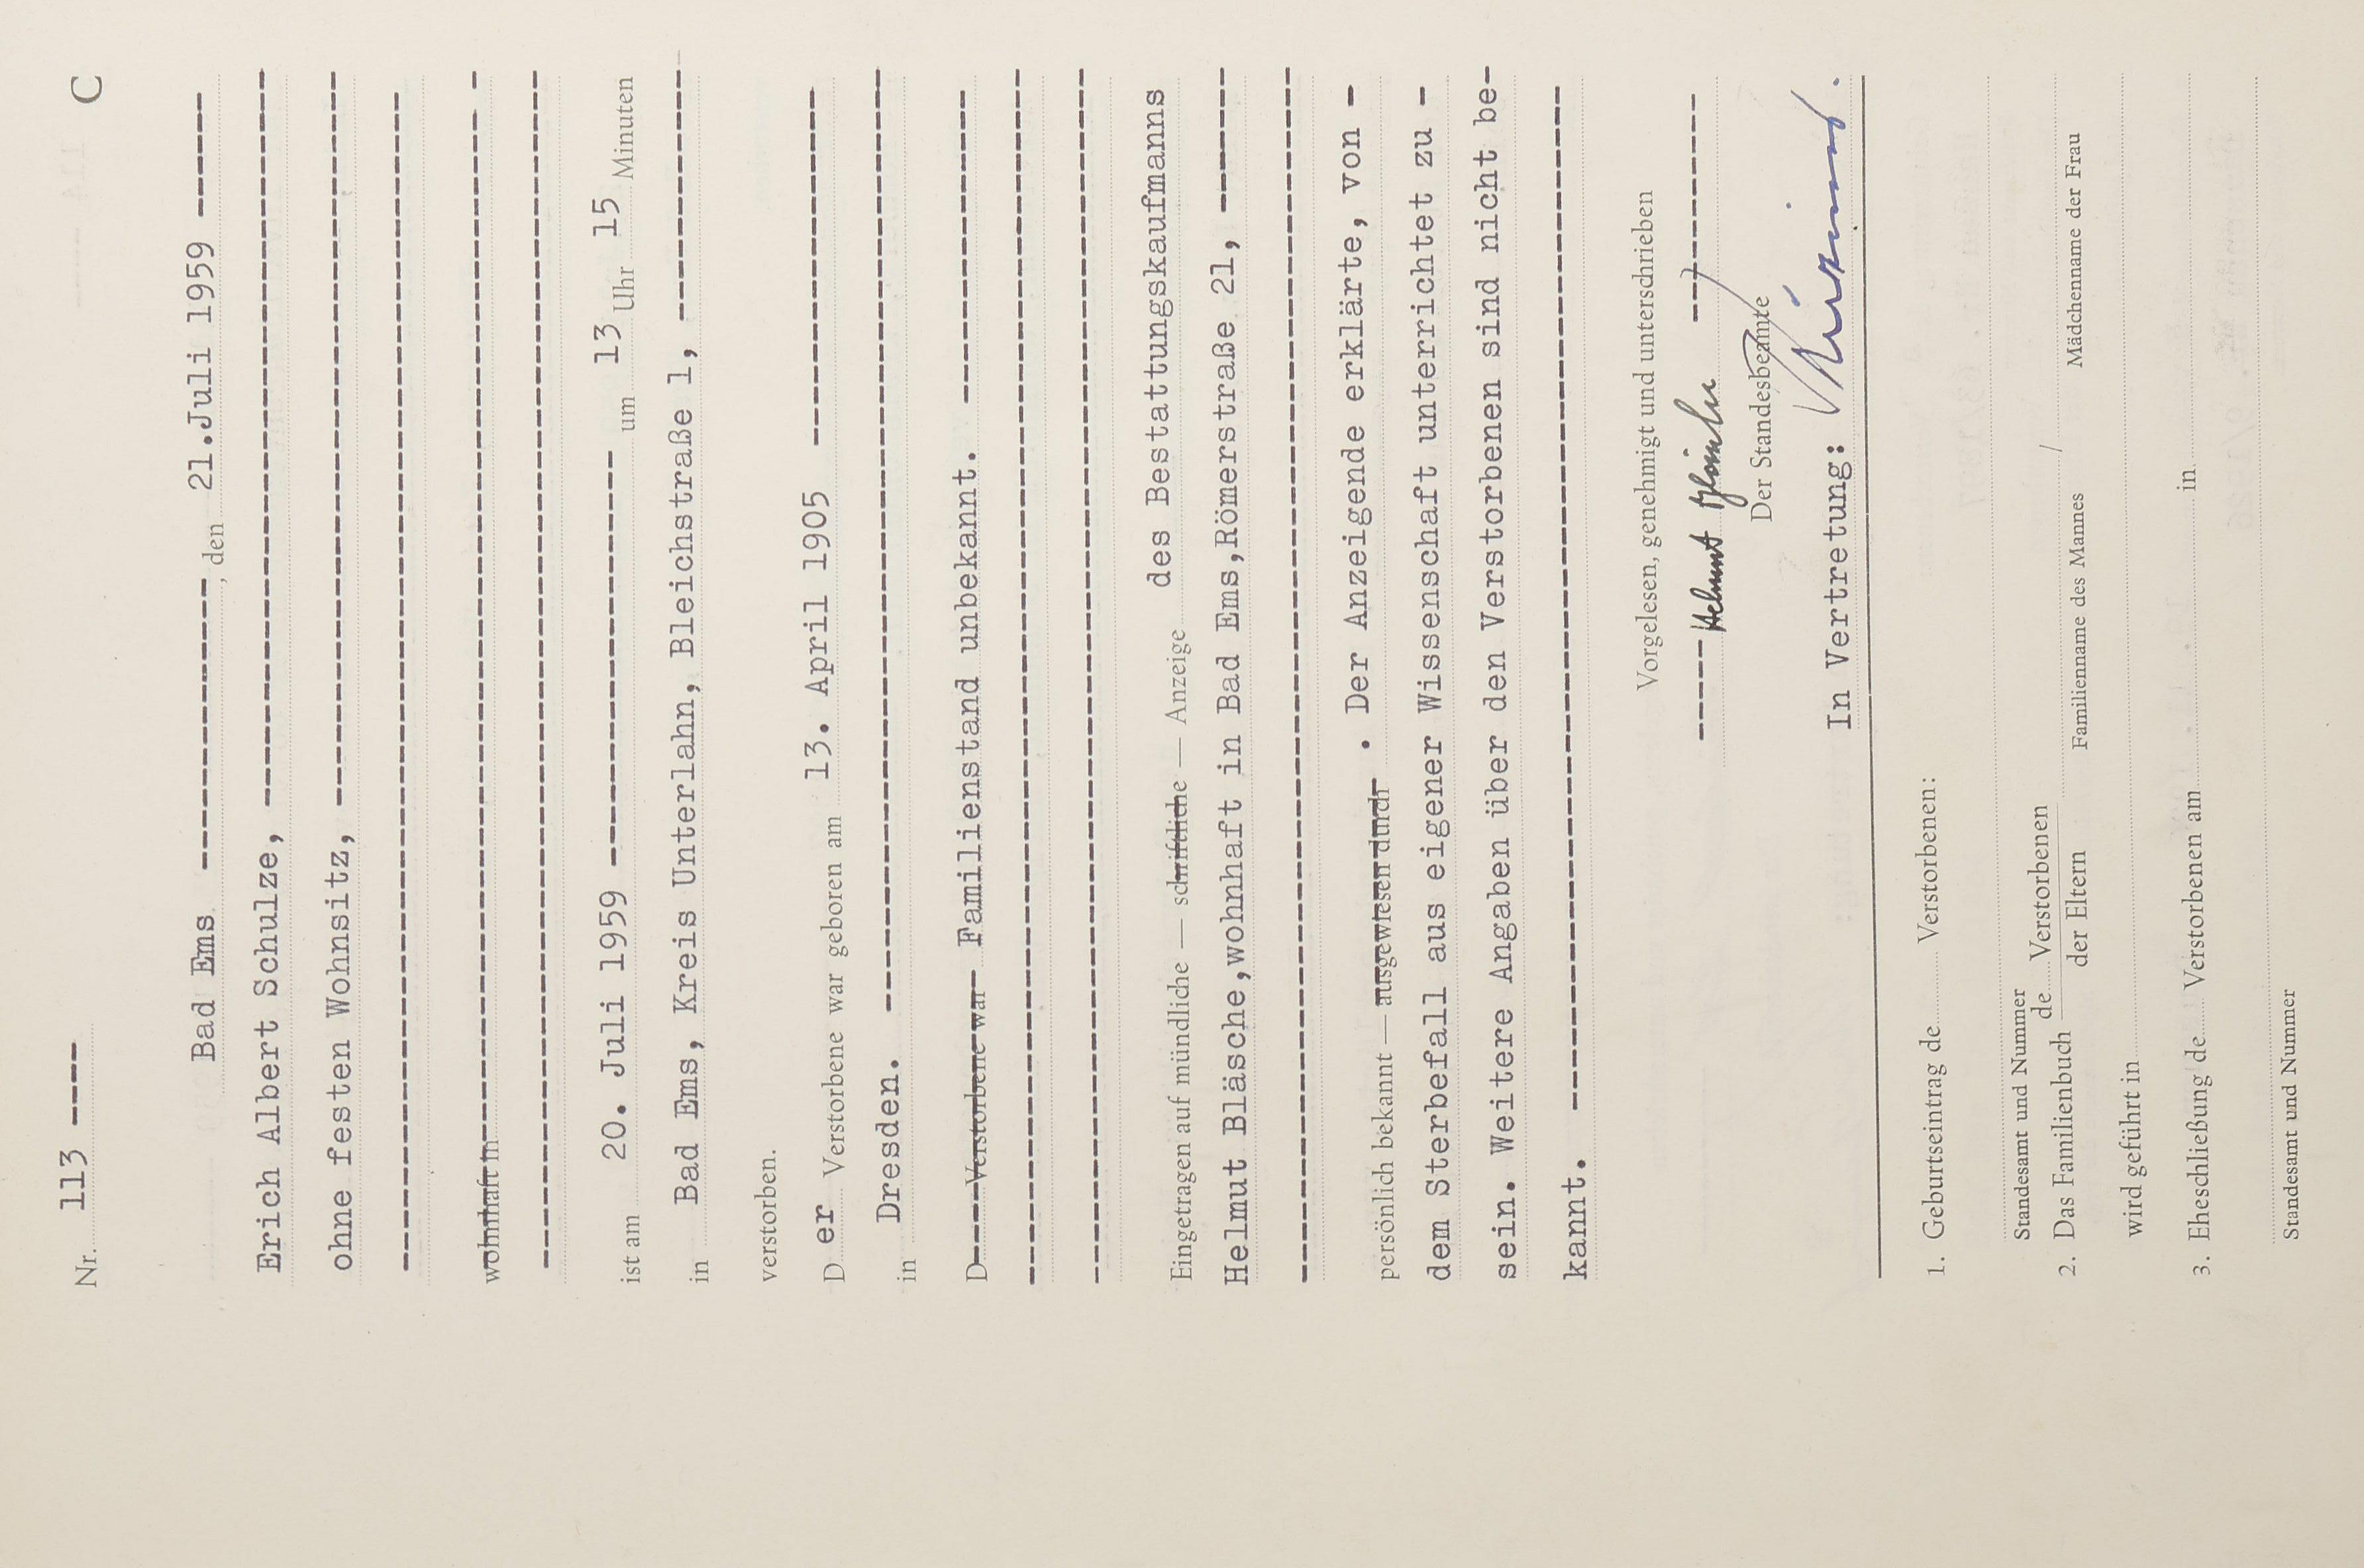 Nr. 113 ---- C
Bad Ems -------------, den 21.Juli 1959 ------
Erich Albert Schulze, --------------------------------
ohne festen Wohnsitz, --------------------------------
------------------------------------------------------
wohnhaft in-------------------------------------------- -
------------------------------------------------------
ist am 20. Juli 1959 ------------------ um 13 Uhr 15 Minuten
in Bad Ems, Kreis Unterlahn, Bleichstraße 1, ------------
verstorben.
D er Verstorbene war geboren am 13. April 1905 ----------------
in Dresden. --------------------------------------------
D----Verstorbene war- Familienstand unbekannt. --------------
------------------------------------------------------
------------------------------------------------------
Eingetragen auf mündliche — schriftliche — Anzeige des Bestattungskaufmanns
Helmut Bläsche,wohnhaft in Bad Ems,Römerstraße 21, -------
------------------------------------------------------
persönlich bekannt — ausgewiesen durch . Der Anzeigende erklärte, von -
dem Sterbefall aus eigener Wissenschaft unterrichtet zu -
sein. Weitere Angaben über den Verstorbenen sind nicht be-
kannt. ----------------------------------------------
Vorgelesen, genehmigt und unterschrieben
-----Helmut Bläsche -----------
Der Standesbeamte
In Vertretung:
1. Geburtseintrag de Verstorbenen:
Standesamt und Nummer
2. Das Familienbuch de Verstorbenen der Eltern /
Familienname des Mannes Mädchenname der Frau
wird geführt in
3. Eheschließung de Verstorbenen am in
Standesamt und Nummer